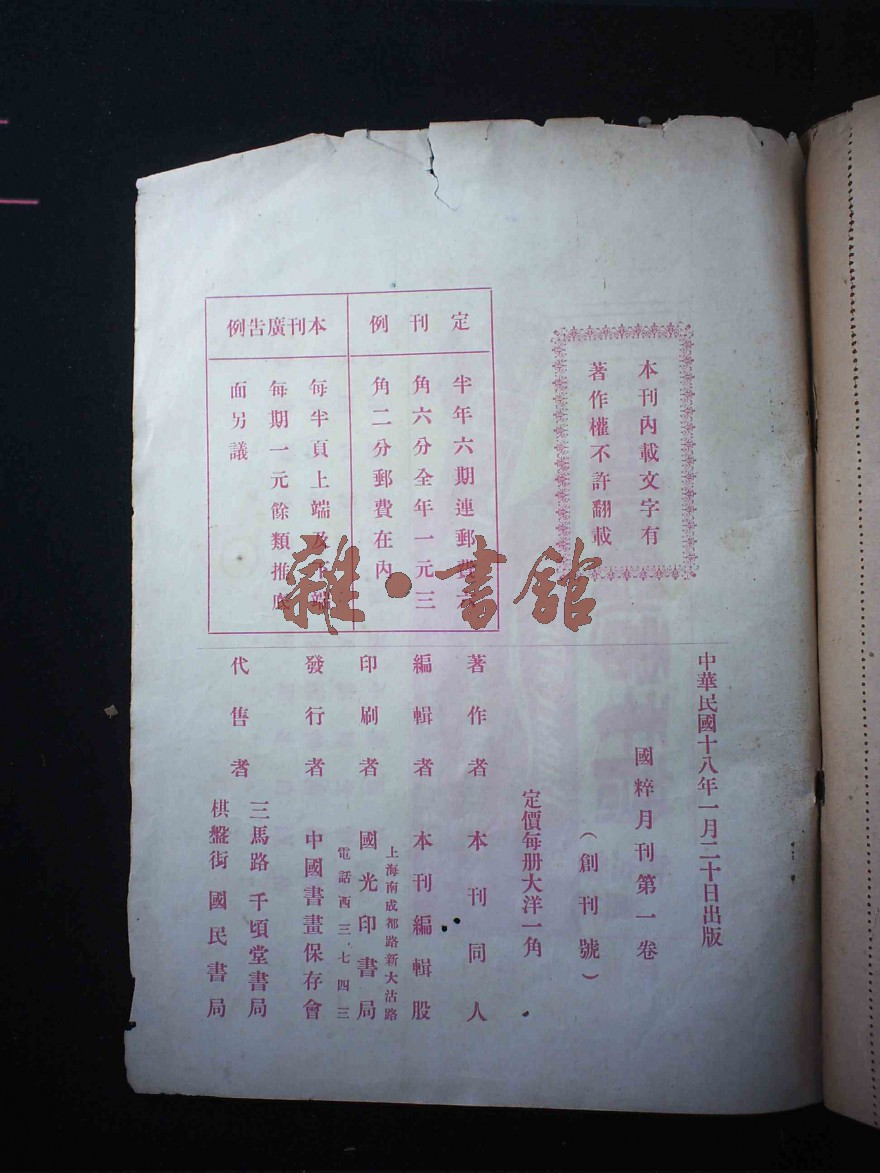 本刊內載文字有
著作權不許翻載
定刊例
半年六期連郵費
角六分全年一元三
角二分郵費在內
本刊廣告例
每半頁上端及 端
每期一元餘類推底
面另議
雜·書館
中華民國十八年一月二十日出版
國粹月刊第一卷
(創刊號)
定價每册大洋一角
著作者 本刊同人
編輯者 本刊編輯股
印刷者 國光印書局
上海南成都路新大沽路
電話西三·七四三
發行者 中國書畫保存會
代售者
三馬路 千頃堂書局
棋盤街 國民書局